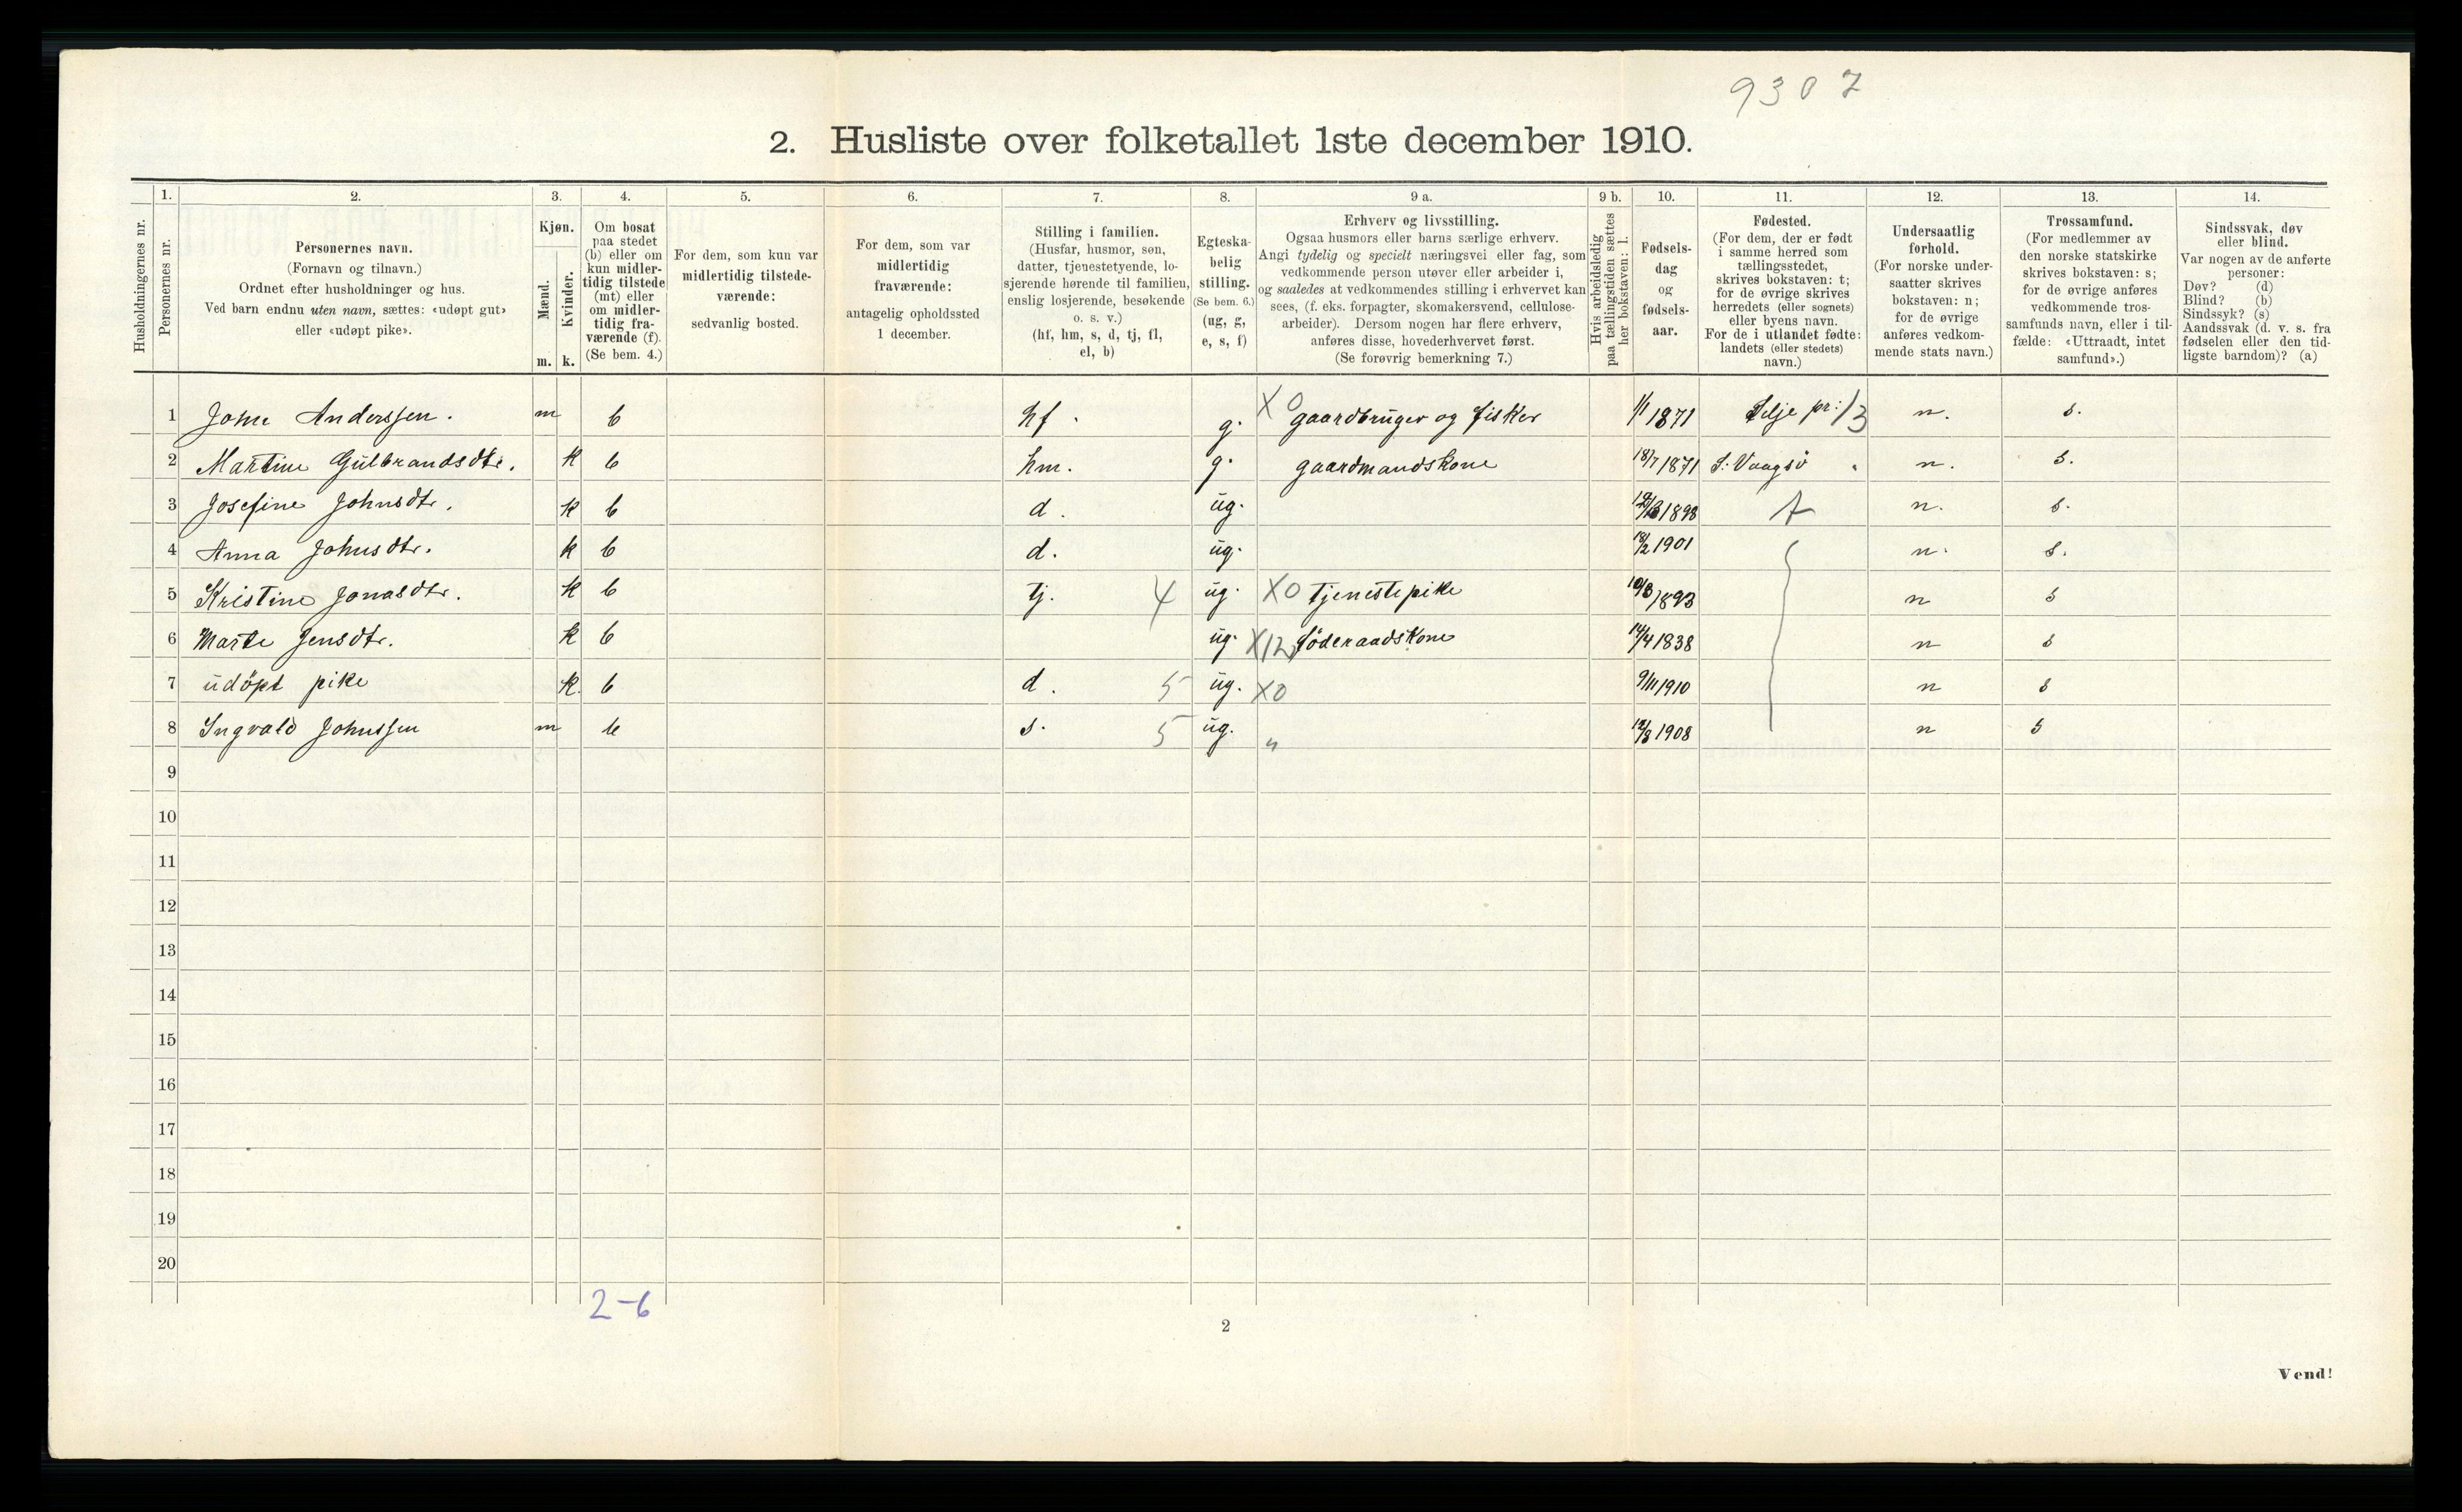 9307
2. Husliste over folketallet 1ste december 1910.
1. 2. 3. 4. 5. 6. 7. 8. 9 a. 9 b. 10. 11. 12. 13. 14.
Husholdningernes nr.
Personernes nr.
Personernes navn.
(Fornavn og tilnavn.)
Ordnet efter husholdninger og hus.
Ved barn endnu uten navn, sættes: «udøpt gut»
eller «udøpt pike».
Kjøn.
Mænd.
Kvinder.
m. k.
Om bosat
paa stedet
(b) eller om
kun midler-
tidig tilstede
(mt) eller
om midler-
tidig fra-
værende (f).
(Se bem. 4.)
For dem, som kun var
midlertidig tilstede-
værende:
sedvanlig bosted.
For dem, som var
midlertidig
fraværende:
antagelig opholdssted
1 december.
Stilling i familien.
(Husfar, husmor, søn,
datter, tjenestetyende, lo-
sjerende hørende til familien,
enslig losjerende, besøkende
o. s. v.)
(hf, hm, s, d, tj, fl,
el, b)
Egteska-
belig
stilling.
(Se bem. 6.)
(ug, g,
e, s, f)
Erhverv og livsstilling.
Ogsaa husmors eller barns særlige erhverv.
Angi tydelig og specielt næringsvei eller fag, som
vedkommende person utøver eller arbeider i,
og saaledes at vedkommendes stilling i erhvervet kan
sees, (f. eks. forpagter, skomakersvend, cellulose-
arbeider). Dersom nogen har flere erhverv,
anføres disse, hovederhvervet først.
(Se forøvrig bemerkning 7.)
Hvis arbeidsledig
paa tællingstiden sættes
her bokstaven: l.
Fødsels-
dag
og
fødsels-
aar.
Fødested.
(For dem, der er født
i samme herred som
tællingsstedet,
skrives bokstaven: t;
for de øvrige skrives
herredets (eller sognets)
eller byens navn.
For de i utlandet fødte:
landets (eller stedets)
navn.)
Undersaatlig
forhold.
(For norske under-
saatter skrives
bokstaven: n;
for de øvrige
anføres vedkom-
mende stats navn.)
Trossamfund.
(For medlemmer av
den norske statskirke
skrives bokstaven: s;
for de øvrige anføres
vedkommende tros-
samfunds navn, eller i til-
fælde: «Uttraadt, intet
samfund».)
Sindssvak, døv
eller blind.
Var nogen av de anførte
personer:
Døv? (d)
Blind? (b)
Sindssyk? (s)
Aandssvak (d. v. s. fra
fødselen eller den tid-
ligste barndom)? (a)
1 John Anderssen. m b hf. g. X0 gaardbruger og fisker 1/1 1871 Selje pr: 13 n. s.
2 Martine Gülbrandsdtr. k b hm. g. gaardmandskone 18/7 1871 S. Vaagsö " n. s.
3 Josefine Johnsdtr. k b d. üg. 1898 t n. s.
4 Anna Johnsdtr. k b d. üg. 18/2 1901 n. s.
5 Kristine Jonasdtr. k b tj. 4 üg. X0 tjenestepike 10/3 1893 n s
6 Marte Jensdtr. k b üg. X12 föderaadskone 14/4 1838 n s
7 üdöpt pike k. b d. 5 üg. X0 9/11 1910 n s
8 Ingvald Johnssen m b s. 5 üg. " 12/3 1908 n s
9
10
11
12
13
14
15
16
17
18
19
20
2-6
2
Vend!